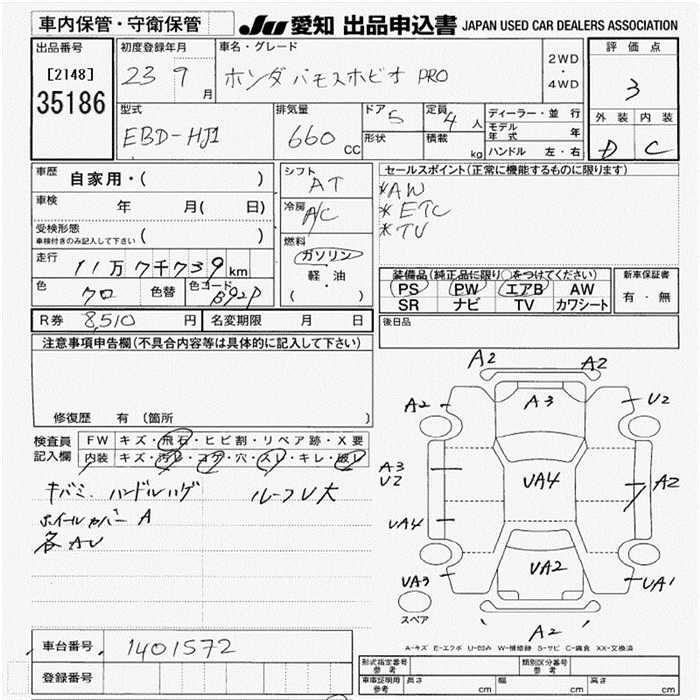 車内保管・守衛保管
JU 愛知 出品申込書 JAPAN USED CAR DEALERS ASSOCIATION
出品番号
[2148]
35186
初度登録年月
23 9月
車名・グレード
ホンダ バモスホビオ PRO
2WD
・
4WD
評価点
3
外装 内装
D C
型式
EBD-HJ1
排気量
660 cc
ドア 5
形状
定員 4人
積載 kg
ディーラー・並行
モデル年式 年
ハンドル 左・右
車歴 自家用・( )
車検 年 月( 日)
受検形態
車検付きのみ記入して下さい ( )
走行 11万7千739km
色 クロ 色替 色コード B92P
シフト AT
冷房 A/C
燃料
ガソリン
軽・油
( )
セールスポイント(正常に機能するものに限ります)
*AW
*ETC
*TV
装備品(純正品に限り○をつけてください)
PS PW エアB AW
SR ナビ TV カワシート
新車保証書
有・無
R券 8,510円 名変期限 月 日
後日品
注意事項申告欄(不具合内容等は具体的に記入して下さい)
修復歴 有(箇所 )
検査員記入欄
FW キズ・飛石・ヒビ割・リペア跡・X要
内装 キズ・汚レ・コゲ・穴・スレ・キレ・破レ
キバミ ハンドルハゲ ルーフU大
ホイールカバー A
各AU
A2 A2
A2 A3 U2
A3
U2
UA4 A2
UA4
UA3 UA2 UA1
スペア
A2
A-キズ E-エクボ U-凹み W-補修跡 S-サビ C-腐食 XX-交換済
車台番号 1401572
登録番号
形式指定番号
参考
類別区分番号
参考
車庫証明用
参考
長さ cm 幅 cm 高さ cm